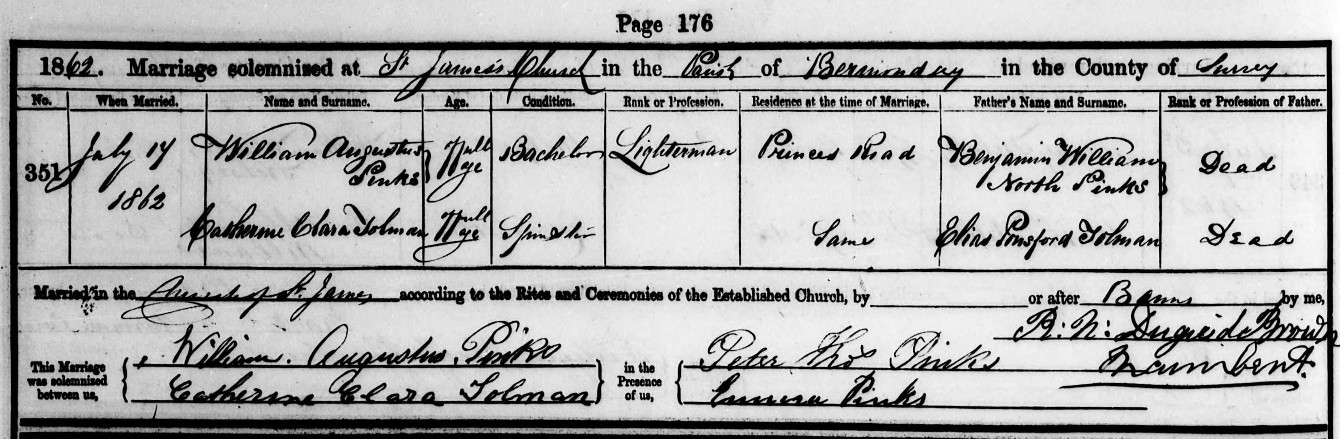 Page 176
1862. Marriage solemnized at St James's Church in the Parish of Bermondsey in the County of Surrey
No. When Married. Name and Surname. Age. Condition. Rank or Profession. Residence at the time of Marriage. Father's Name and Surname. Rank or Profession of Father.
351 July 17 1862 William Augustus Pinks Full age Bachelor Lighterman Princes Road Benjamin William North Pinks Dead
Catherine Clara Tolman Full age Spinster Same Elias Ponsford Tolman Dead
Married in the Church of St. James according to the Rites and Ceremonies of the Established Church, by or after Banns by me,
R. N. Brown
Incumbent.
This Marriage was solemnized between us, William Augustus Pinks in the Presence of us, Peter Thos Pinks
Catherine Clara Tolman Emma Pinks